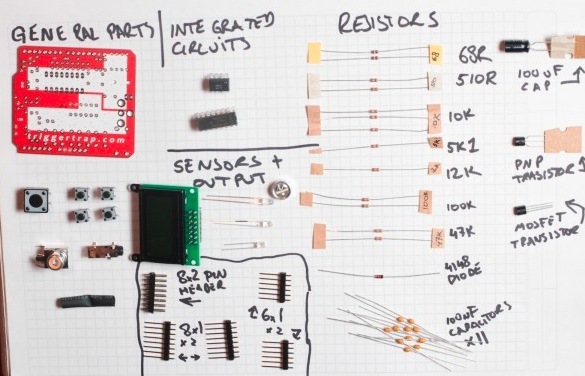 GENERAL PARTS
INTEGRATED
CIRCUITS
RESISTORS
68R
510R
10K
5K1
12K
100K
47K
4148
DIODE
100NF
CAPACITORS
x11
100UF
CAP
PNP
TRANSISTOR
MOSFET
TRANSISTOR
triggertrap.com
SENSORS +
OUTPUT
8x2 PIN
HEADER
8x1
x2
6x1
x2
68
10K
100K
47K